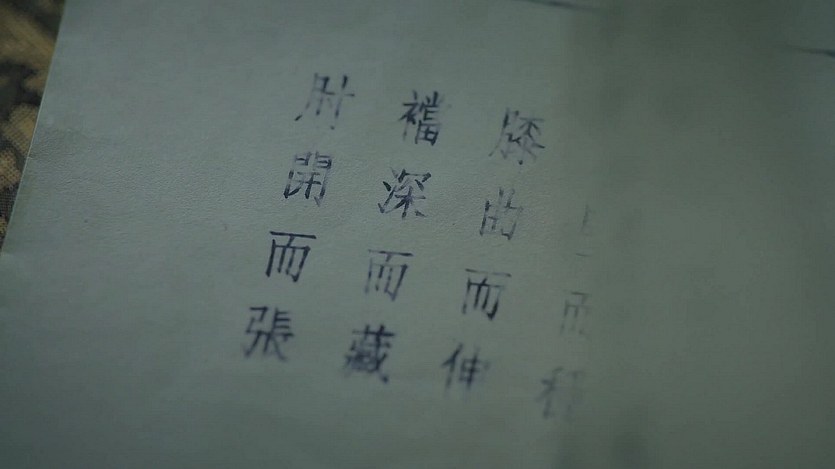 而
膝曲而伸
襠深而藏
肘開而張